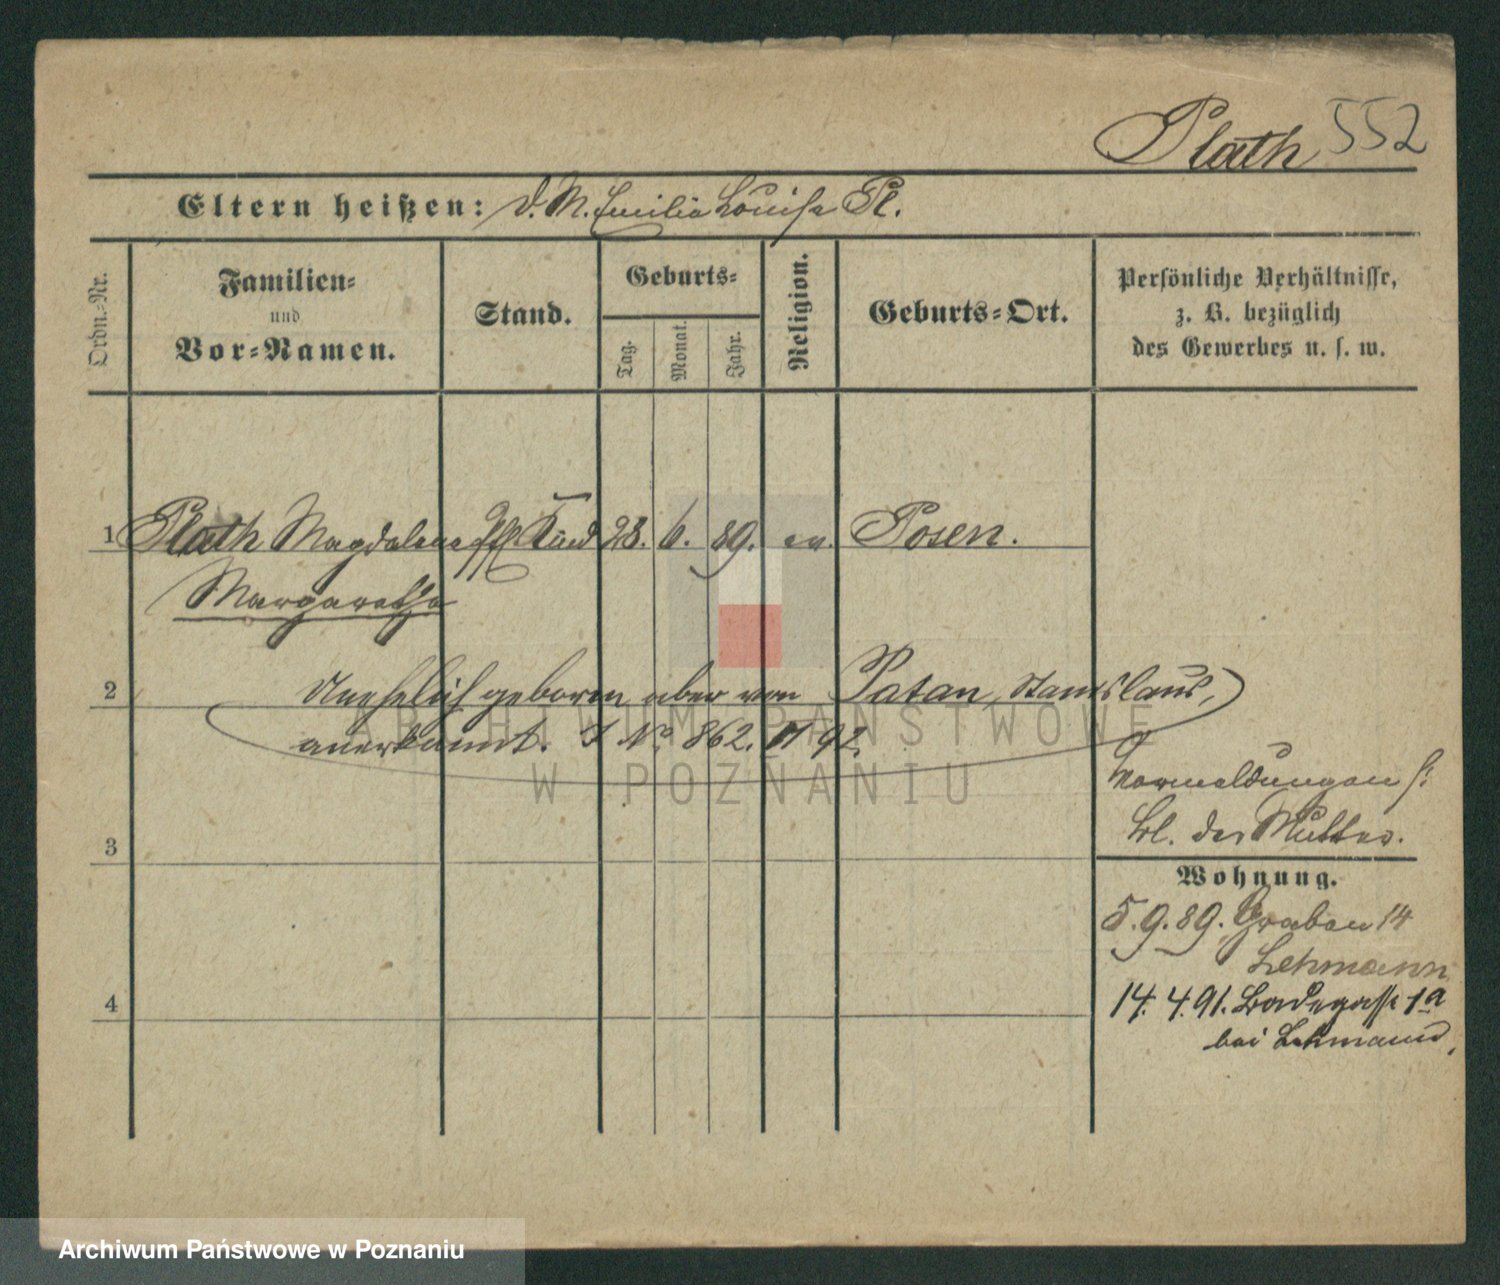 Plath 552
Eltern heißen: d. M. Emilia Louise Pl.
Ordn.-Nr.
Familien-
und
Vor-Namen.
Stand.
Geburts-
Tag.
Monat.
Jahr.
Religion.
Geburts-Ort.
Persönliche Verhältnisse,
z. B. bezüglich
des Gewerbes u. s. w.
1 Plath Magdalena Kind 28. 6. 89. ev. Posen.
Margaretha
2 Unehelich geboren aber von Patan, Stanislaus,
anerkannt. J No. 862. 92.
Vormeldungen s:
Bl. der Mutter.
3
Wohnung.
5. 9. 89. Graben 14
Lehmann
4
14. 4. 91. Badegasse 1a
bei Lehmann.
ARCHIWUM PAŃSTWOWE
W POZNANIU
Archiwum Państwowe w Poznaniu